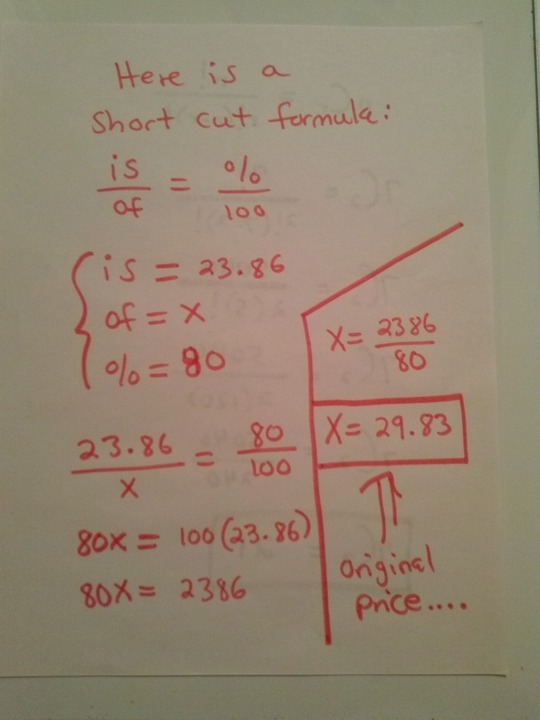 Here is a
Short cut formula:
is/of = %/100
is = 23.86
of = X
% = 80
23.86/X = 80/100
80X = 100(23.86)
80X = 2386
X = 2386/80
X = 29.83
original
price....